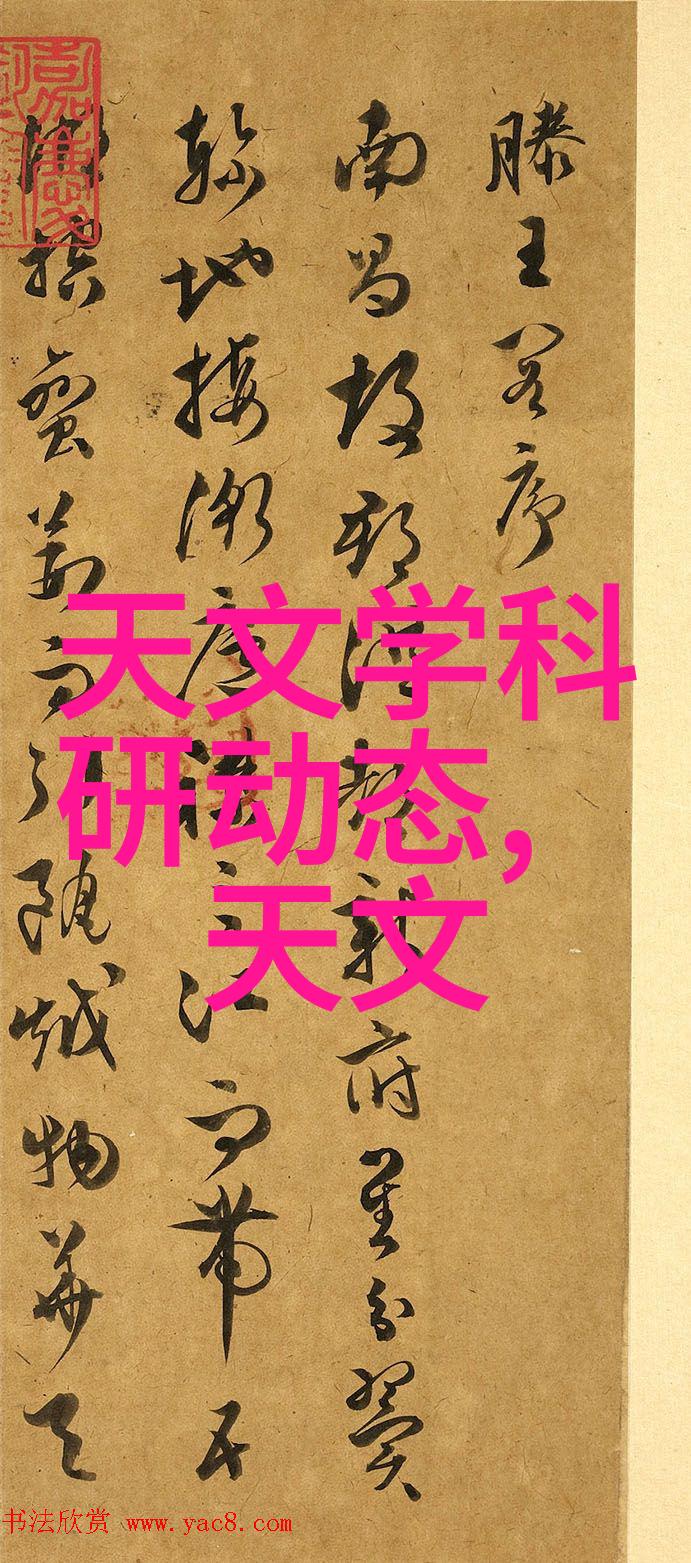 滕王閣序
南昌故郡洪都新府星分翼
軫地接衡廬襟三江而帶五
湖控蠻荊而引甌越物華天
天文学科
研动态，
天文
书法欣赏 www.yac8.com